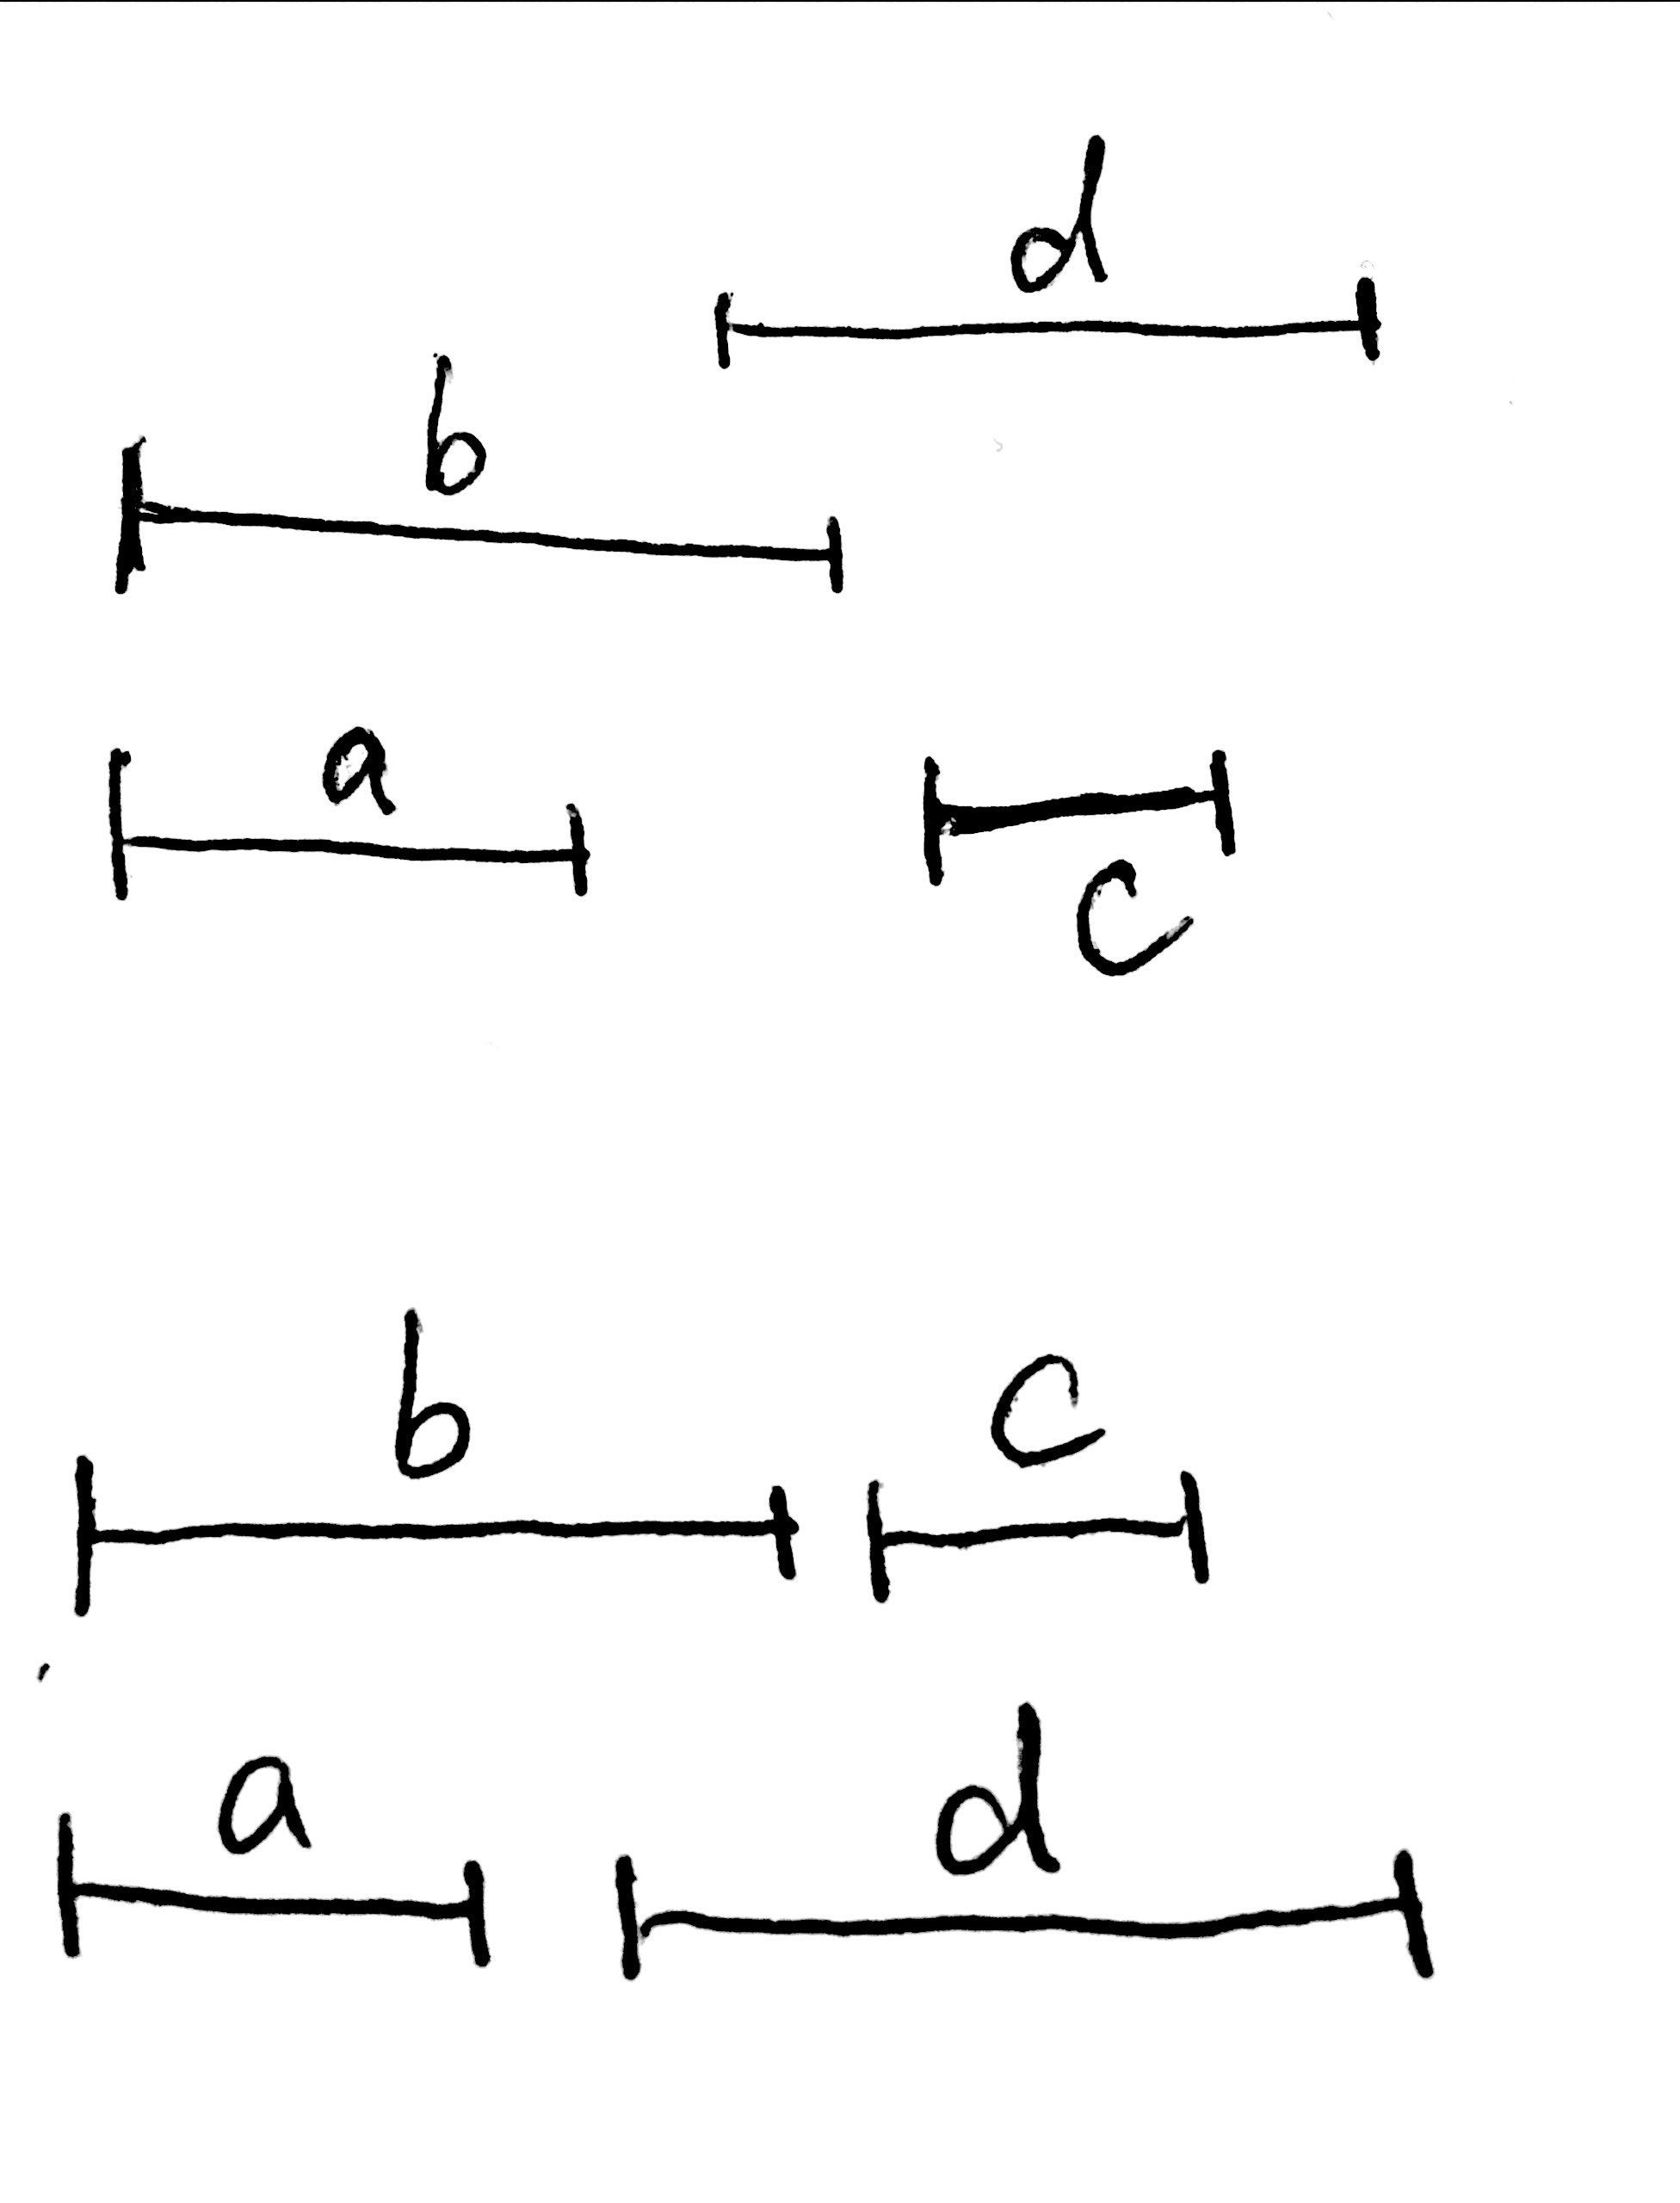 d
b
a
c
b c
a d